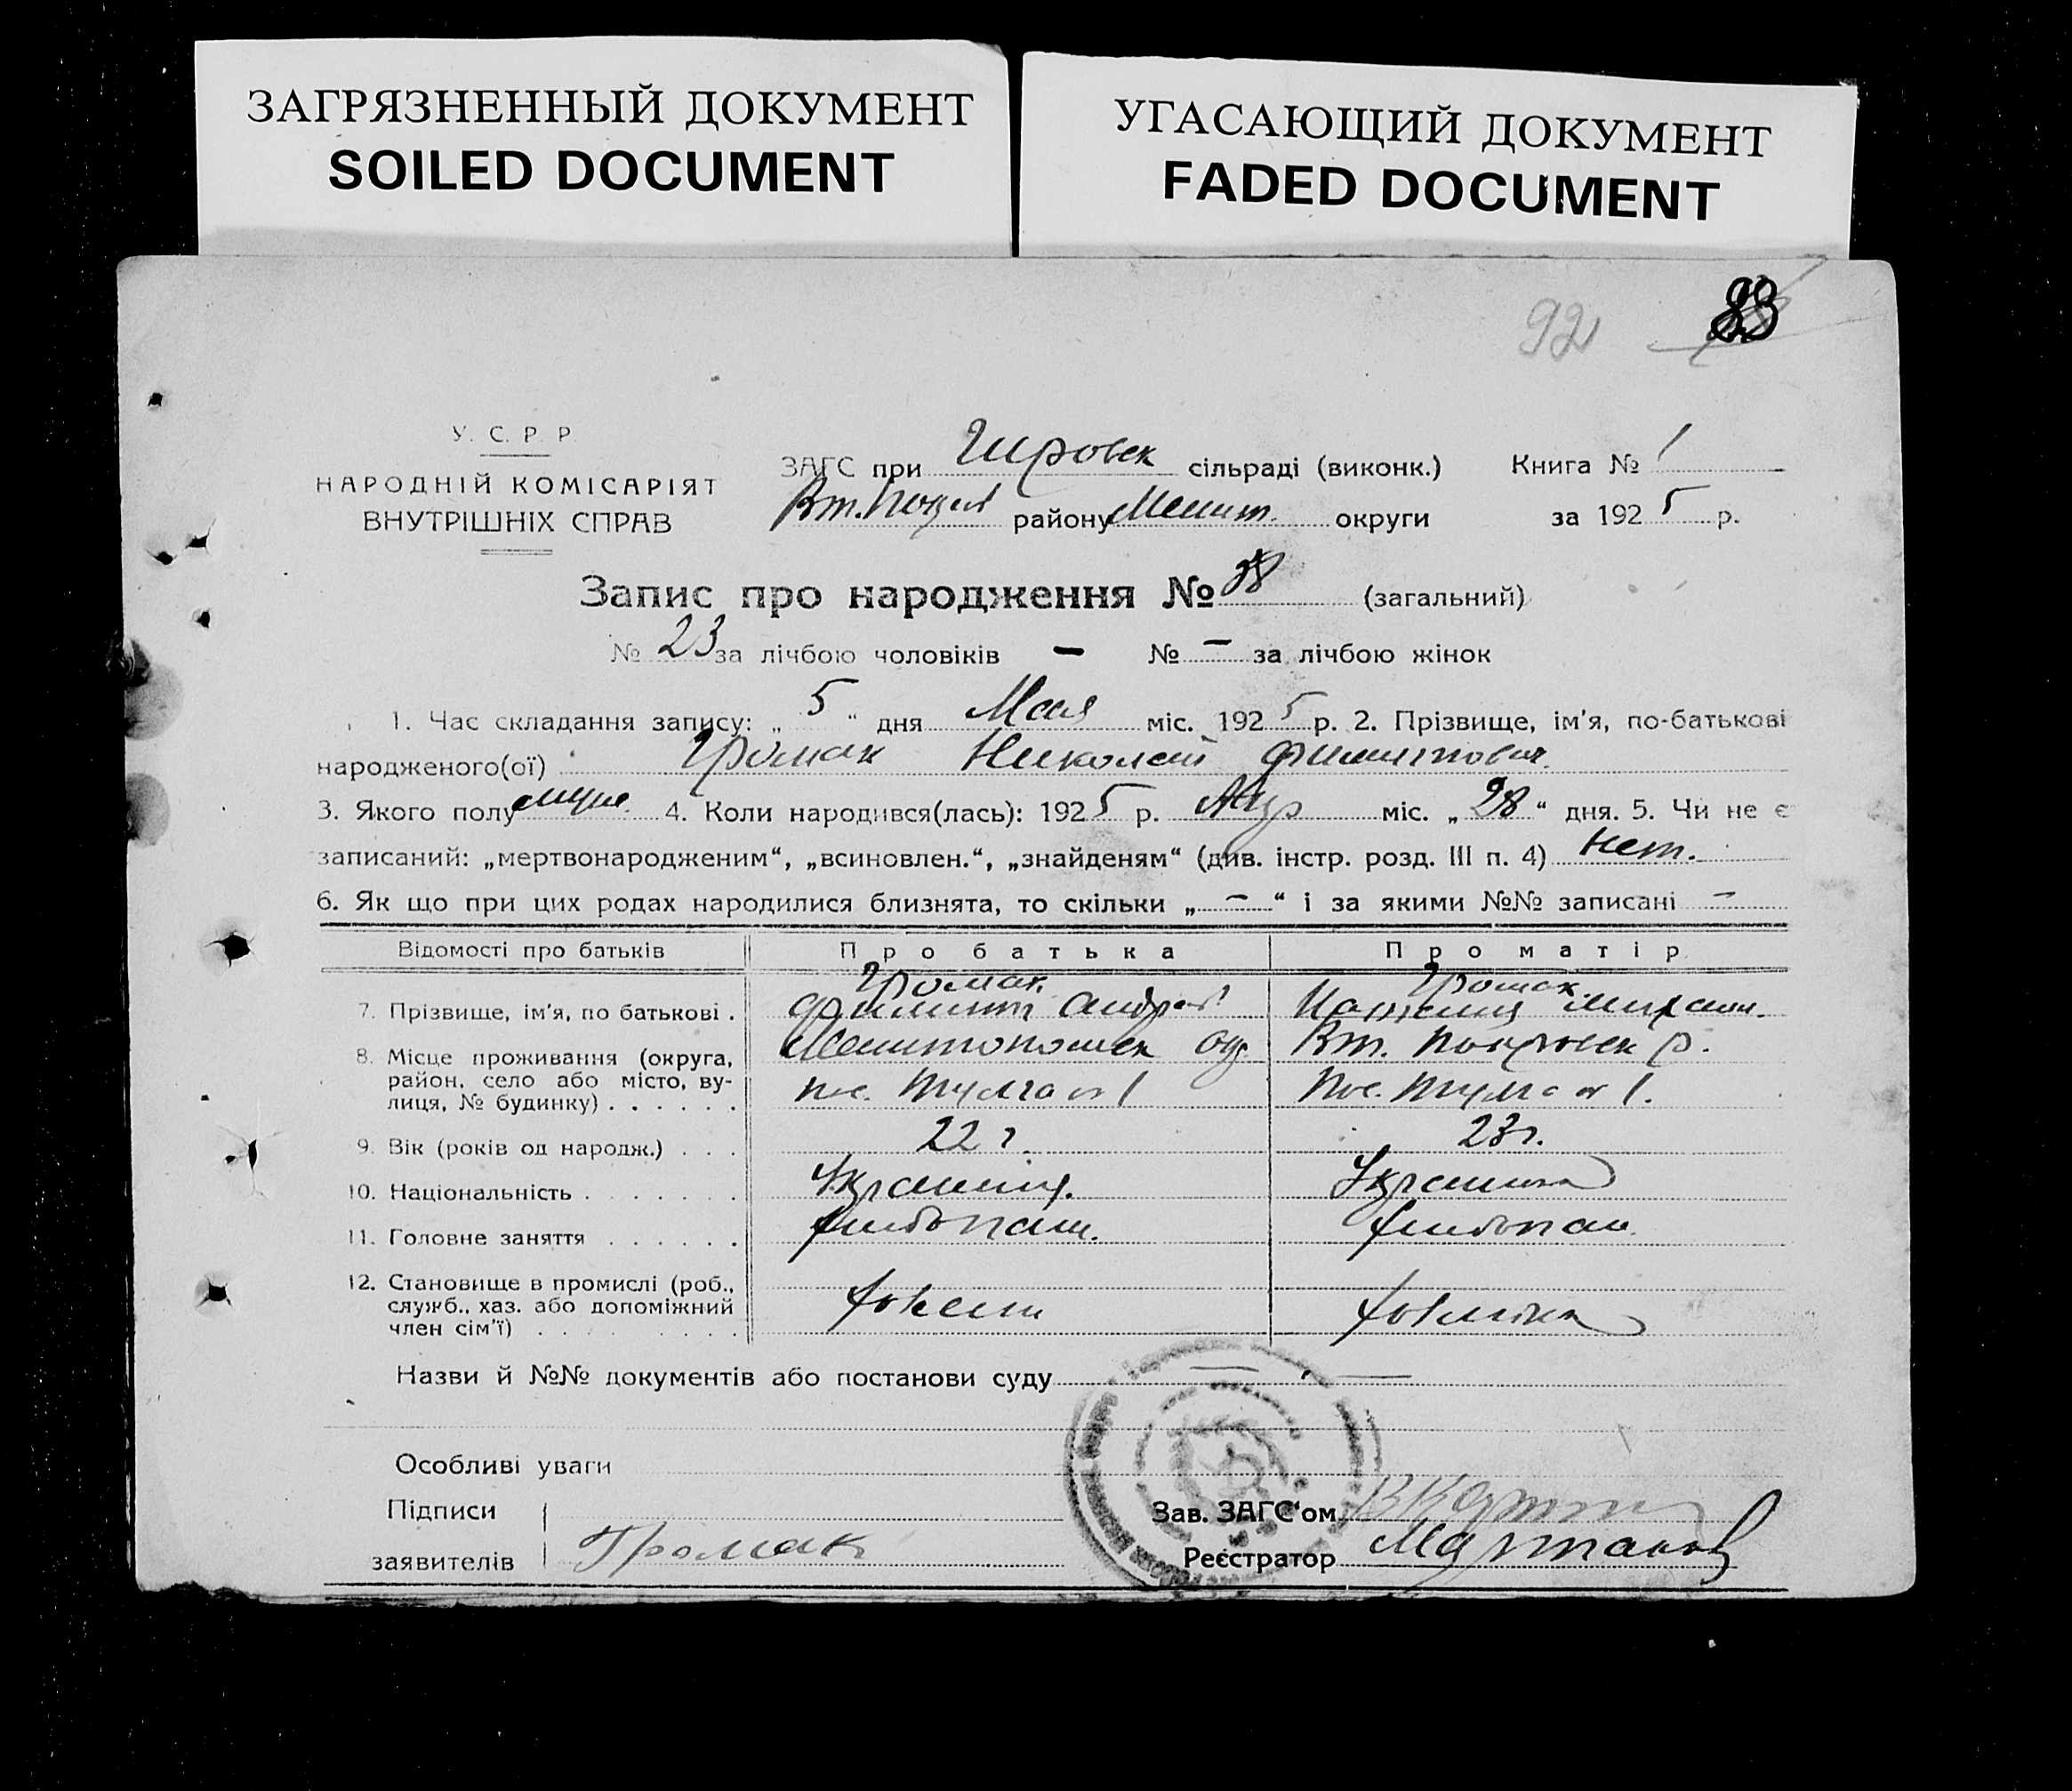 ЗАГРЯЗНЕННЫЙ ДОКУМЕНТ
SOILED DOCUMENT
УГАСАЮЩИЙ ДОКУМЕНТ
FADED DOCUMENT
92
У. С. Р. Р.
НАРОДНІЙ КОМІСАРІЯТ
ВНУТРІШНІХ СПРАВ
ЗАГС при Шровск сільраді (виконк.) Книга № 1
району Мелит. округи за 1925 р.
Запис про народження № 38 (загальний)
№ 23 за лічбою чоловіків — № — за лічбою жінок
1. Час складання запису: „5“ дня Мая міс. 1925 р. 2. Прізвище, ім'я, по-батькові
народженого(ої) Громак Николай Филиппович
3. Якого полу муж. 4. Коли народився(лась): 1925 р. Апр міс. „28“ дня. 5. Чи не є
записаний: „мертвонародженим“, „всиновлен.“, „знайденям“ (див. інстр. розд. III п. 4) Нет.
6. Як що при цих родах народилися близнята, то скільки „—“ і за якими №№ записані —
Відомості про батьків Про батька Про матір
Громак Громак
7. Прізвище, ім'я, по батькові . Филипп Андрей Наталия Михаил.
8. Місце проживання (округа, Мелитопольск окр Вт. Покровск р.
район, село або місто, ву-
лиця, № будинку) . . . . . . пос. 1 пос. 1.
9. Вік (років од народж.) . . . 22 г. 23 г.
10. Національність . . . . . . . Украинц. Украинка
11. Головне заняття . . . . . . Хлебопаш. Хлебопаш.
12. Становище в промислі (роб.,
служб., хаз. або допоміжний Хозяин Хозяйка
член сім'ї) . . . . . . . . .
Назви й №№ документів або постанови суду — —
Особливі уваги
Підписи Зав. ЗАГС'ом
заявителів Громак Реєстратор